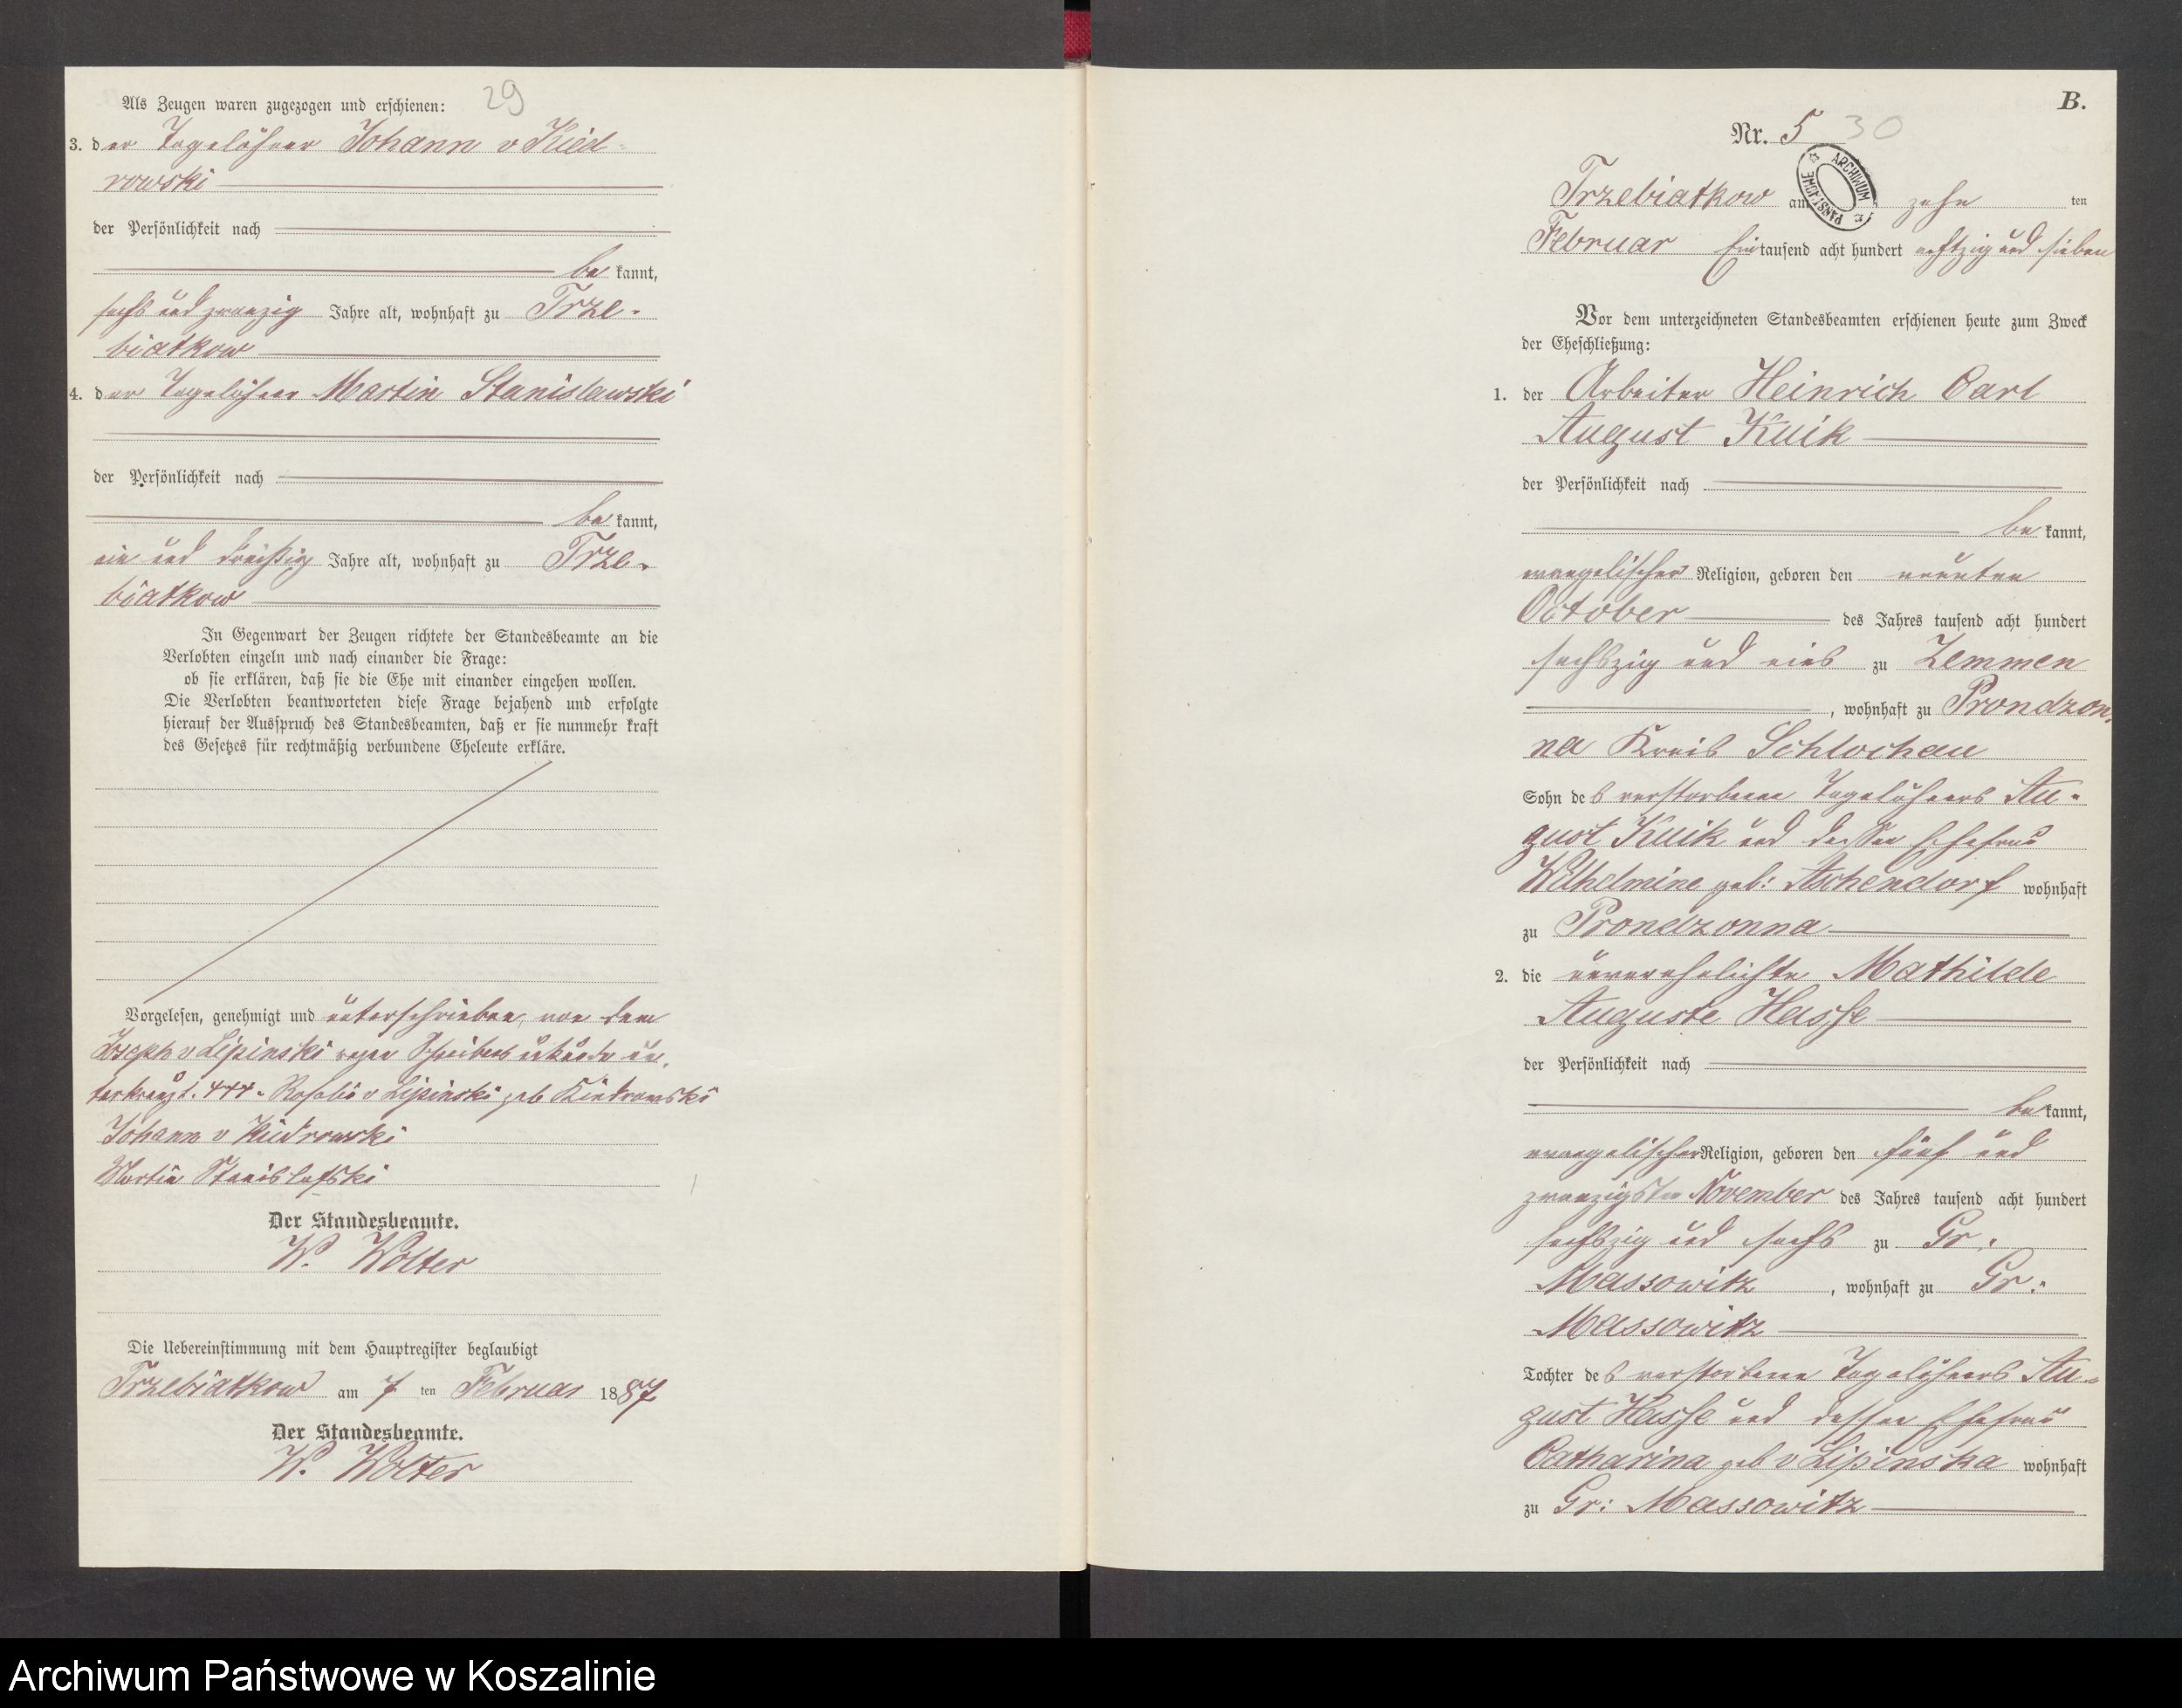 Als Zeugen waren zugezogen und erschienen: 29
3. der Tagelöhner Johann v Kied-
rowski
der Persönlichkeit nach
be kannt,
sechs und zwanzig Jahre alt, wohnhaft zu Trze-
biatkow
4. der Tagelöhner Martin Stanislawski
der Persönlichkeit nach
be kannt,
ein und dreißig Jahre alt, wohnhaft zu Trze-
biatkow
In Gegenwart der Zeugen richtete der Standesbeamte an die
Verlobten einzeln und nach einander die Frage:
ob sie erklären, daß sie die Ehe mit einander eingehen wollen.
Die Verlobten beantworteten diese Frage bejahend und erfolgte
hierauf der Ausspruch des Standesbeamten, daß er sie nunmehr kraft
des Gesetzes für rechtmäßig verbundene Eheleute erkläre.
Vorgelesen, genehmigt und unterschrieben, von dem
Joseph v Lipinski wegen Schreibens unkunde un-
terkreuzt. +++ Rosalie v Lipinski geb Kiedrowski
Johann v Kiedrowski
Martin Stanislafski
Der Standesbeamte.
W. Wolter
Die Uebereinstimmung mit dem Hauptregister beglaubigt
Trzebiatkow am 7 ten Februar 1887
Der Standesbeamte.
W. Wolter
B.
Nr. 5 30
ARCHIWUM PAŃSTWOWE
Trzebiatkow am zehn ten
Februar Eintausend acht hundert achtzig und sieben
Vor dem unterzeichneten Standesbeamten erschienen heute zum Zweck
der Eheschließung:
1. der Arbeiter Heinrich Carl
August Kuik
der Persönlichkeit nach
be kannt,
evangelischer Religion, geboren den neunten
October des Jahres tausend acht hundert
sechszig und eins zu Zemmen
, wohnhaft zu Prondzon-
na Kreis Schlochau
Sohn des verstorbenen Tagelöhners Au-
gust Kuik und dessen Ehefrau
Wilhelmine geb: Aschendorf wohnhaft
zu Prondzonna
2. die unverehelichte Mathilde
Auguste Hasse
der Persönlichkeit nach
be kannt,
evangelischer Religion, geboren den fünf und
zwanzigsten November des Jahres tausend acht hundert
sechszig und sechs zu Gr:
Massowitz , wohnhaft zu Gr:
Massowitz
Tochter des verstorbenen Tagelöhners Au-
gust Hasse und dessen Ehefrau
Catharina geb v Lipinska wohnhaft
zu Gr: Massowitz
Archiwum Państwowe w Koszalinie